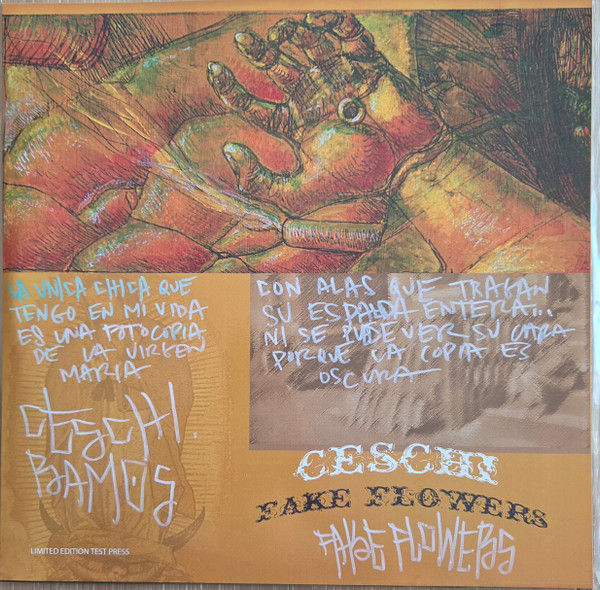 LA UNICA CHICA QUE
TENGO EN MI VIDA
ES UNA FOTOCOPIA
DE LA VIRGEN
MARIA
CON ALAS QUE TRAGAN
SU ESPALDA ENTERA...
NI SE PUEDE VER SU CARA
PORQUE LA COPIA ES
OSCURA
CESCHI
RAMOS
CESCHI
FAKE FLOWERS
FAKE FLOWERS
LIMITED EDITION TEST PRESS